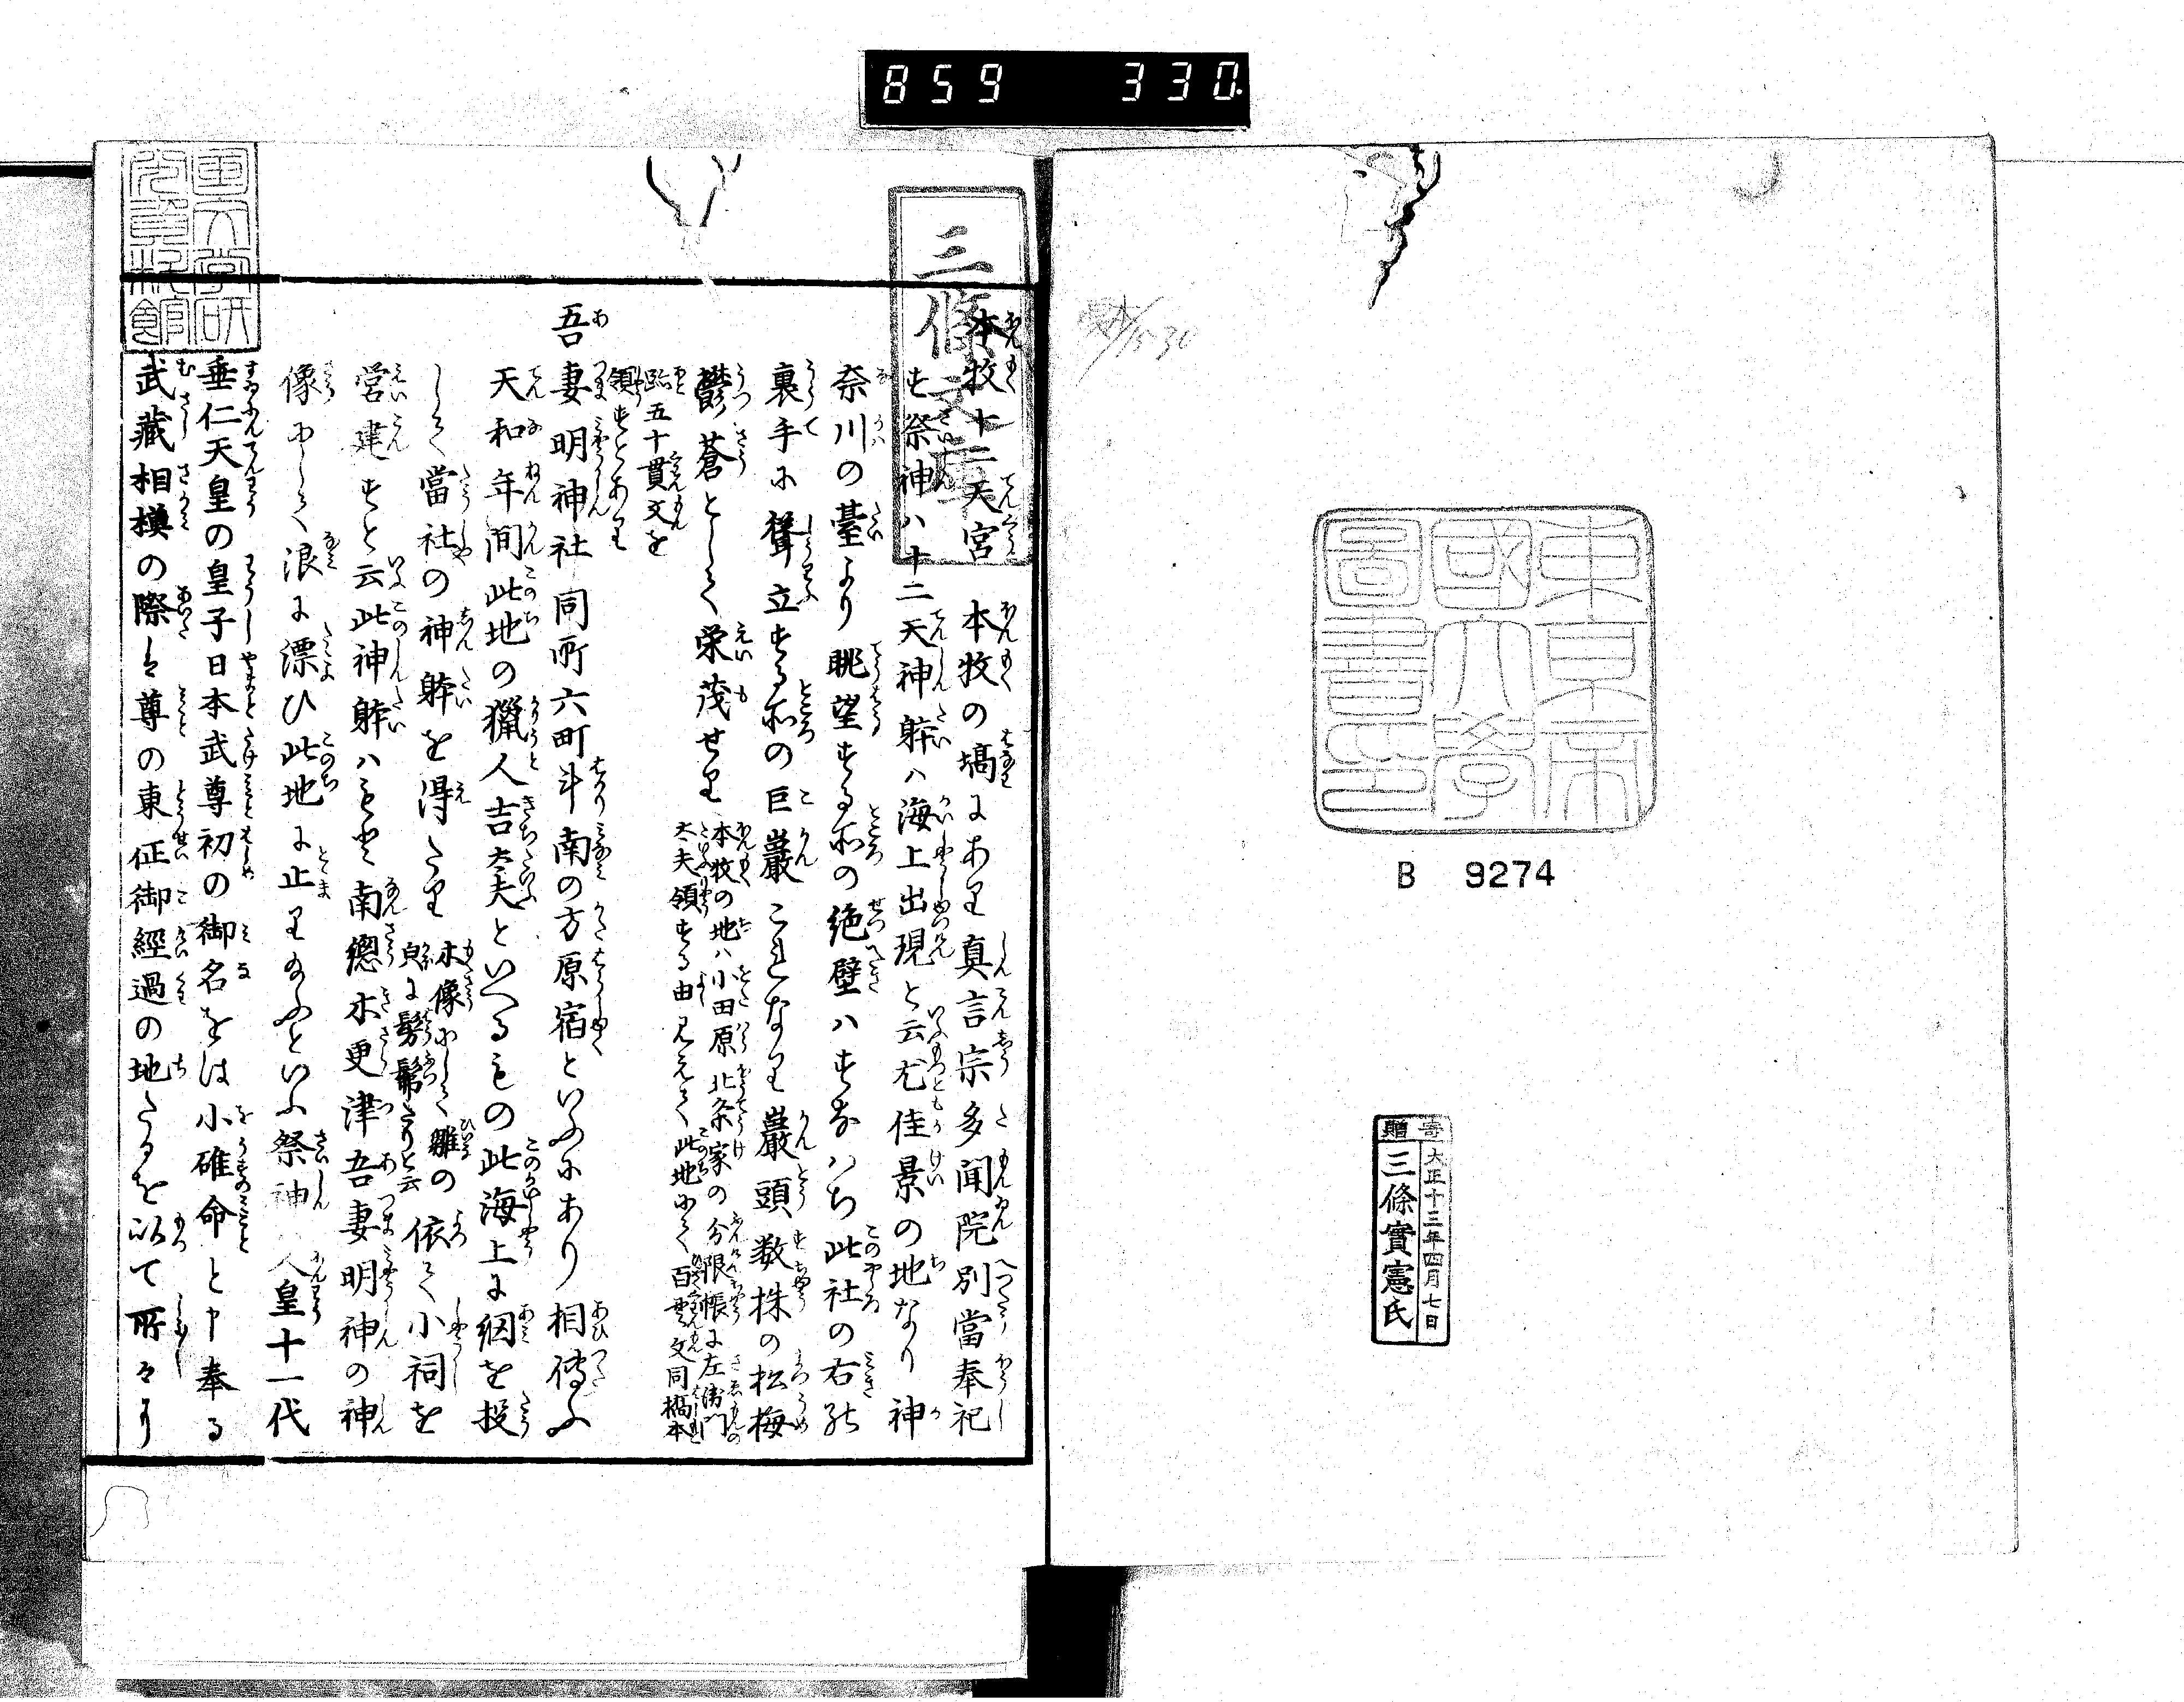 859 330
東京帝
國大學
圖書印
B 9274
寄贈
大正十三年四月七日
三條實憲氏
三條文庫
本牧十二天宮 本牧の塙にあり真言宗多聞院別當奉祀
す祭神ハ十二天神躰ハ海上出現と云尤佳景の地なり神
奈川の臺より眺望する所の絶壁ハすなハち此社の右の
裏手に聳立する所の巨巖これなり巖頭数株の松梅
鬱蒼として栄茂せり
本牧の地ハ小田原北条家の分限帳に左衛門
太夫領する由見えて此地にて百貫文同橋本
跡五十貫文を
領すとあり
吾妻明神社 同所六町斗南の方原宿といふにあり相傳ふ
天和年間此地の獵人吉太夫といへるもの此海上に網を投
して當社の神躰を得たり
木像にして雛の
貝に髣髴たりと云
依て小祠を
営建すと云此神躰ハもと南總木更津吾妻明神の神
像にして浪に漂ひ此地に止り給ふといふ祭神 人皇十一代
垂仁天皇の皇子日本武尊初の御名をは小碓命と申奉る
武藏相模の際は尊の東征御經過の地たるを以て所々に
国文学研
究資料館